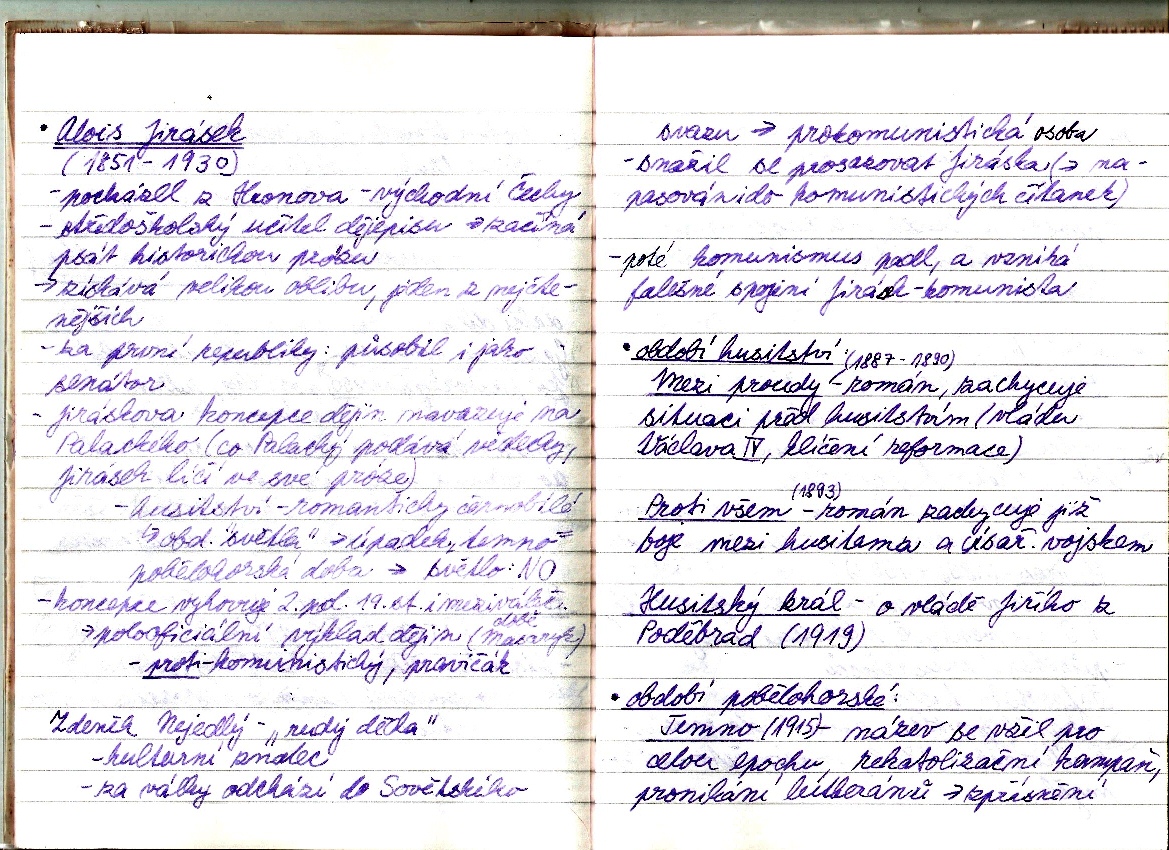 • Alois Jirásek
(1851 - 1930)
- pocházel z Hronova - východní Čechy
- středoškolský učitel dějepisu → začíná
psát historickou prózu
→ získává velikou oblibu, jeden z nejčte-
nějších
- za první republiky: působil i jako
senátor
- Jiráskova koncepce dějin navazuje na
Palackého (co Palacký podává vědecky,
Jirásek líčí ve své próze)
- husitství - romanticky černobílé
→ obd. "světla" → úpadek, temno =
pobělohorská doba → světlo: NO
- koncepce vyhovuje 2. pol. 19. st. i meziváleč.
době
→ polooficiální výklad dějin (Masaryk)
- proti-komunistický, pravičák
Zdeněk Nejedlý - "rudý děda"
- kulturní znalec
- za války odchází do Sovětského
svazu → prokomunistická osoba
- snažil se prosazovat Jiráska (→ na-
pasování do komunistických čítanek)
- poté komunismus padl, a vzniká
falešné spojení Jirásek-komunista
• období husitství: (1887 - 1890)
Mezi proudy - román, zachycuje
situaci před husitstvím (vládu
Václava IV, klíčení reformace)
(1893)
Proti všem - román zachycuje již
boje mezi husitama a císař. vojskem
Husitský král - o vládě Jiřího z
Poděbrad (1919)
• období pobělohorské:
Temno (1915) - název se vžil pro
celou epochu, rekatolizační kampaň,
pronikání lutheránů → zpřísnění